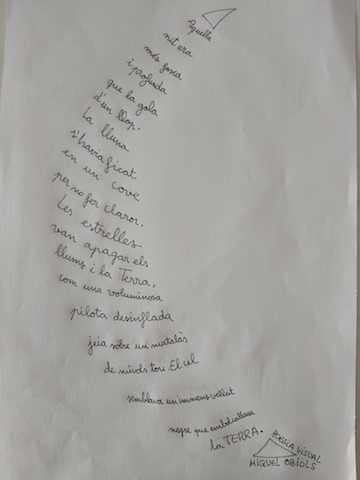 Aquella
nit era
més fosca
i profunda
que la gola
d'un llop.
La lluna
s'havia ficat
en un cove
per no fer claror.
Les estrelles
van apagar els
llums i la Terra,
com una voluminosa
pilota desinflada
jeia sobre un matalàs
de núvols tou. El cel
semblava un immens vellut
negre que embolcallava
la TERRA.
POESIA VISUAL
MIQUEL OBIOLS